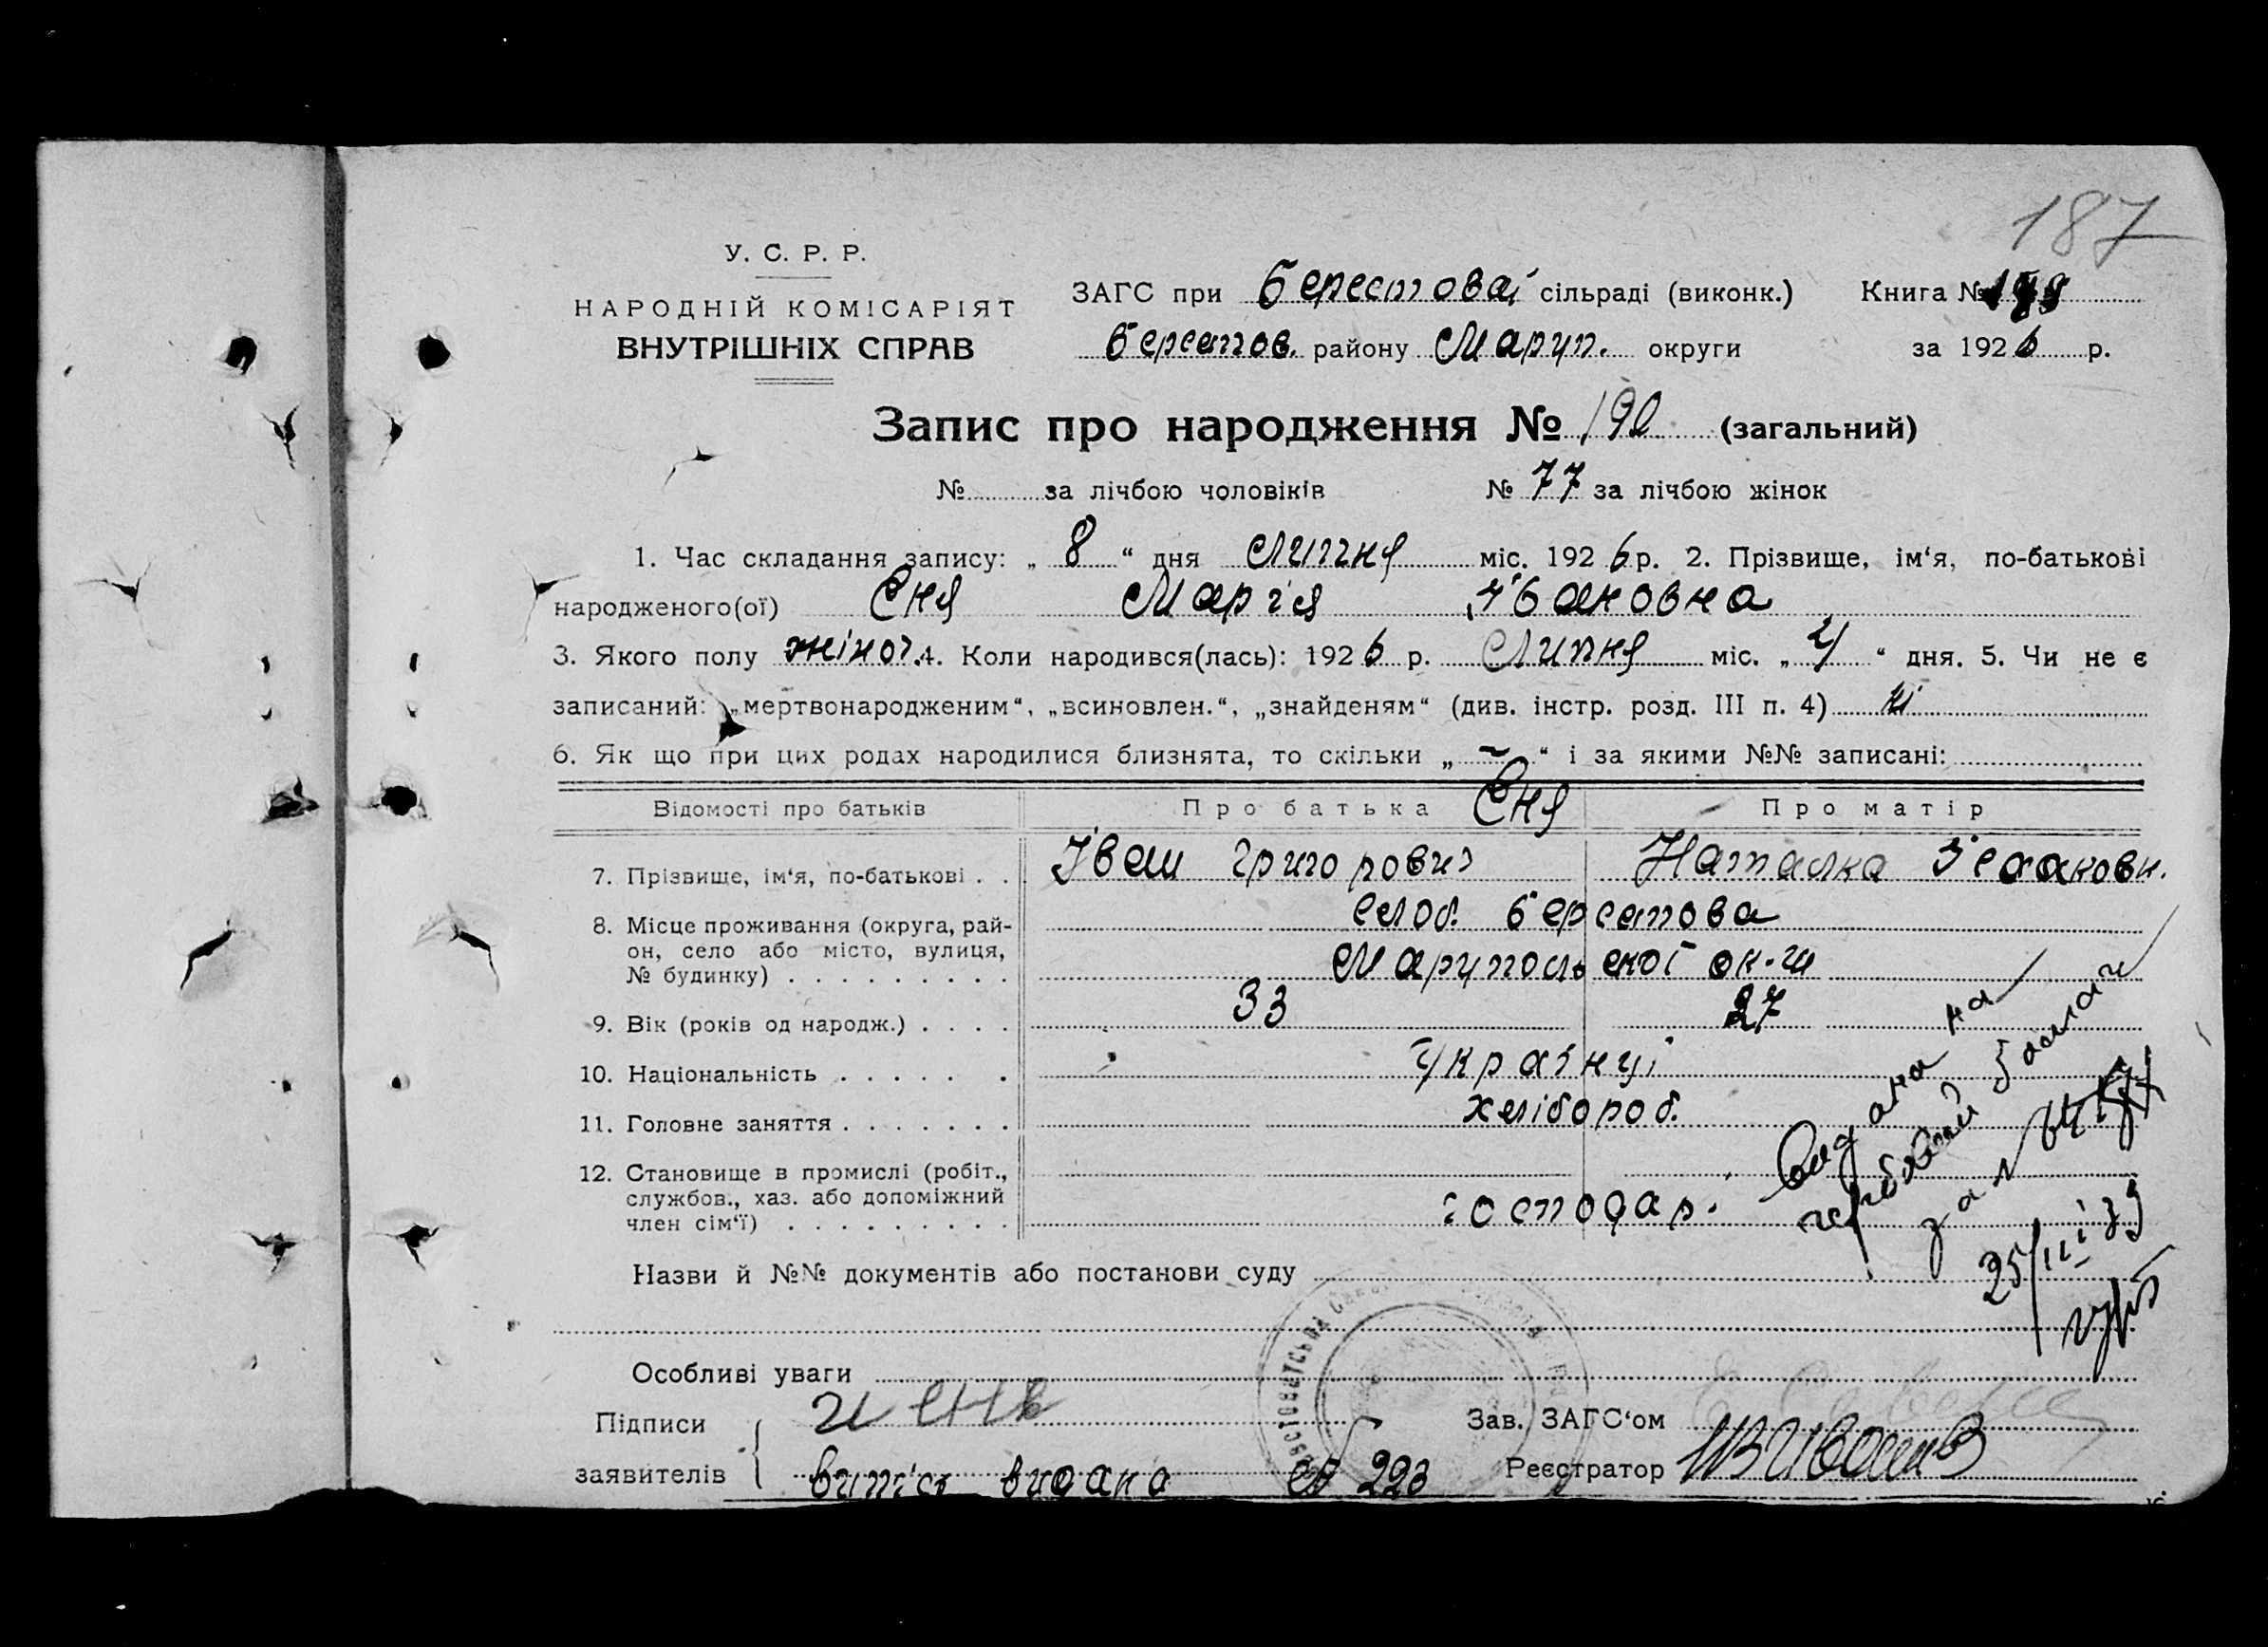 187
У. С. Р. Р.
НАРОДНІЙ КОМІСАРІЯТ
ВНУТРІШНІХ СПРАВ
ЗАГС при Берестовій сільраді (виконк.) Книга №
Берестов. району Маруп. округи за 1926 р.
Запис про народження № 190 (загальний)
№ за лічбою чоловіків № 77 за лічбою жінок
1. Час складання запису: „ 8 “ дня Липня міс. 1926 р. 2. Прізвище, ім‘я, по-батькові
народженого(ої) Єня Марія Івановна
3. Якого полу жіноч. 4. Коли народився(лась): 1926 р. Липня міс. „ 4 “ дня. 5. Чи не є
записаний: „мертвонародженим“, „всиновлен.“, „знайденям“ (див. інстр. розд. III п. 4) ні
6. Як що при цих родах народилися близнята, то скільки „ – “ і за якими №№ записані:
Відомості про батьків Про батька Єня Про матір
7. Прізвище, ім‘я, по-батькові . . Іван Григорович Наталка Ісааковн.
8. Місце проживання (округа, рай-
он, село або місто, вулиця,
№ будинку) . . . . . . . . .
Слоб. Берестова
Марупольської ок-ги
9. Вік (років од народж.) . . . . 33 27
10. Національність . . . . . . Українці
11. Головне заняття . . . . . . . хлібороб.
12. Становище в промислі (робіт.,
службов., хаз. або допоміжний
член сім‘ї) . . . . . . . . .
господар.
Видана на
гербовий бланк
за №
25/III 39
Назви й №№ документів або постанови суду
Особливі уваги
Підписи
заявителів
И Єня
Випись видана 223
Зав. ЗАГС‘ом
Реєстратор